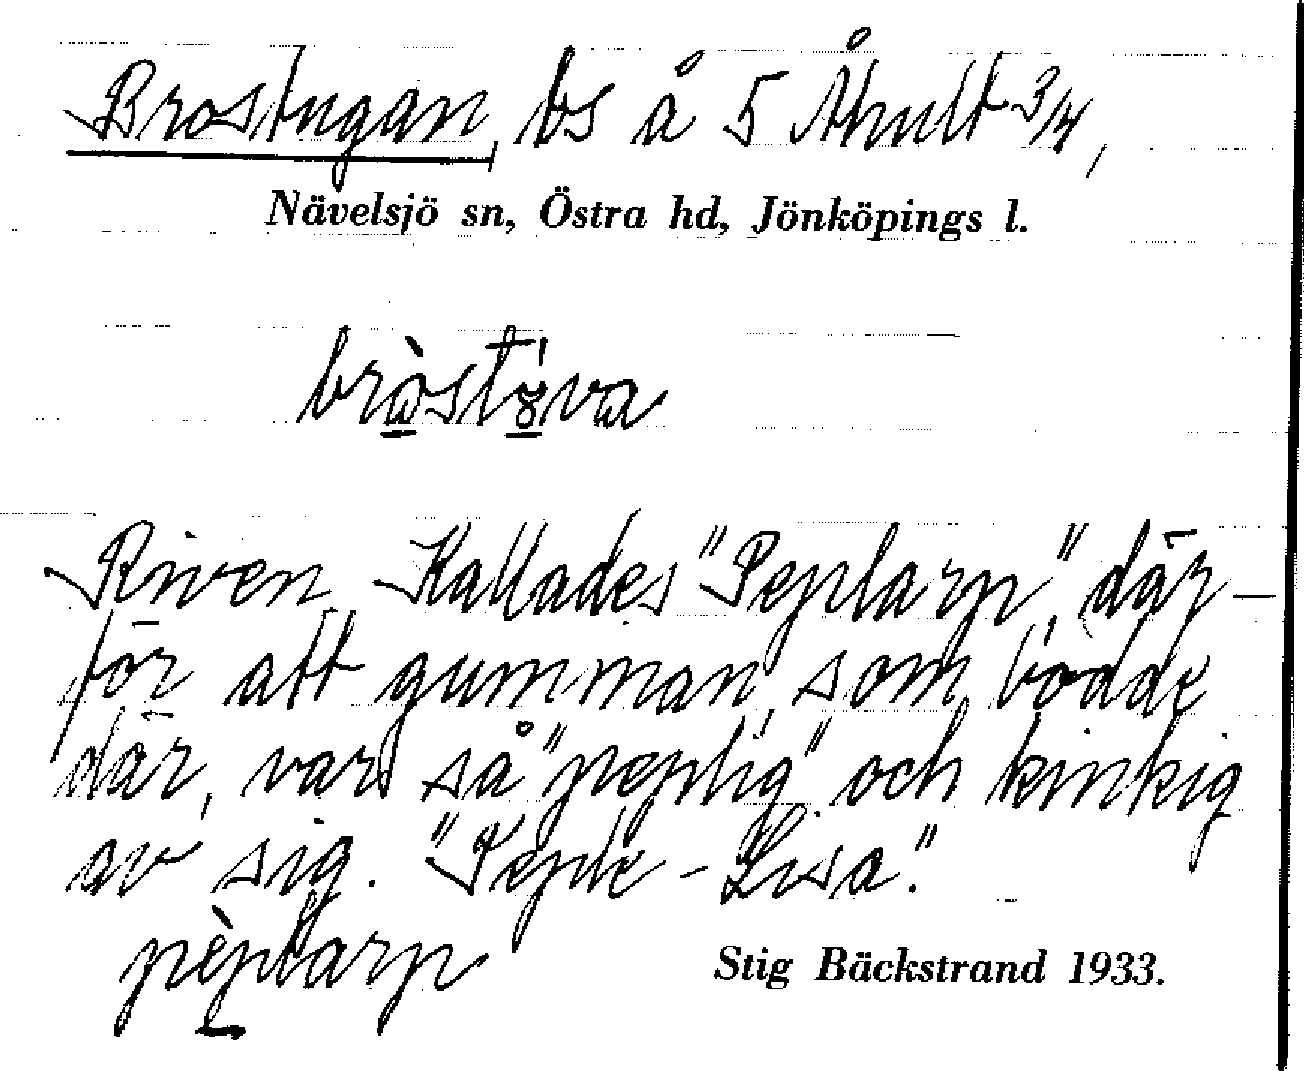 Brostugan, bs å 5 Åhult 3/4,
Nävelsjö sn, Östra hd, Jönköpings l.
bròstȣ́va
Riven. Kallades "Peplarp", där-
för att gumman, som bodde
där, var så "peplig" och kinkig
av sig. "Peple-Lisa."
pèplarp
Stig Bäckstrand 1933.